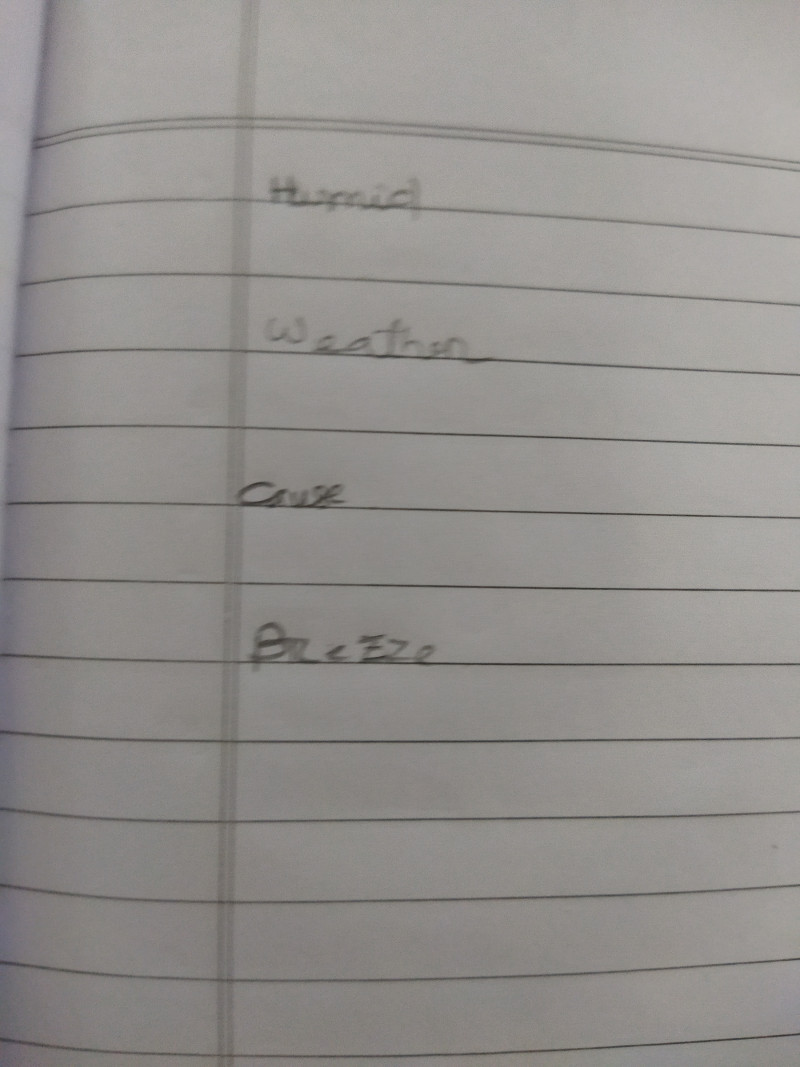 Humid
Weather
Cause
BreZze